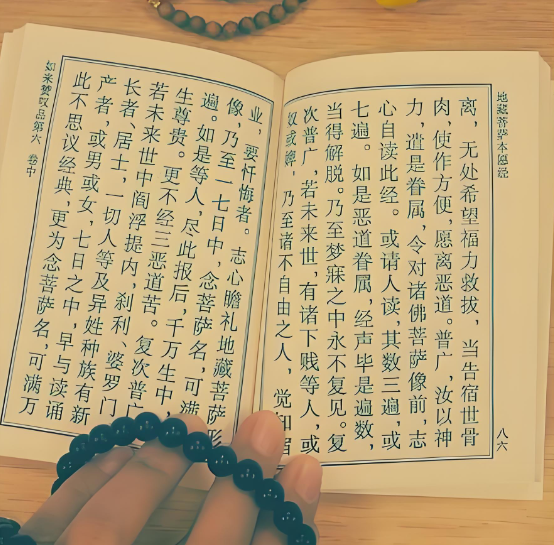 地藏菩萨本愿经
八六
离，无处希望福力救拔，当告宿世骨
肉，使作方便，愿离恶道。普广，汝以神
力，遣是眷属，令对诸佛菩萨像前，志
心自读此经。或请人读，其数三遍，或
七遍。如是恶道眷属，经声毕是遍数，
当得解脱。乃至梦寐之中永不复见。复
次普广，若未来世，有诸下贱等人，或
奴或婢，乃至诸不自由之人，觉知宿
业，要忏悔者。志心瞻礼地藏菩萨形
像，乃至一七日中，念菩萨名，可满
遍。如是等人，尽此报后，千万生中，
生尊贵。更不经三恶道苦。复次普广
若未来世中阎浮提内，刹利、婆罗门
长者、居士，一切人等及异姓种族有新
产者，或男或女，七日之中，早与读诵
此不思议经典，更为念菩萨名，可满万
如来赞叹品第六 卷中